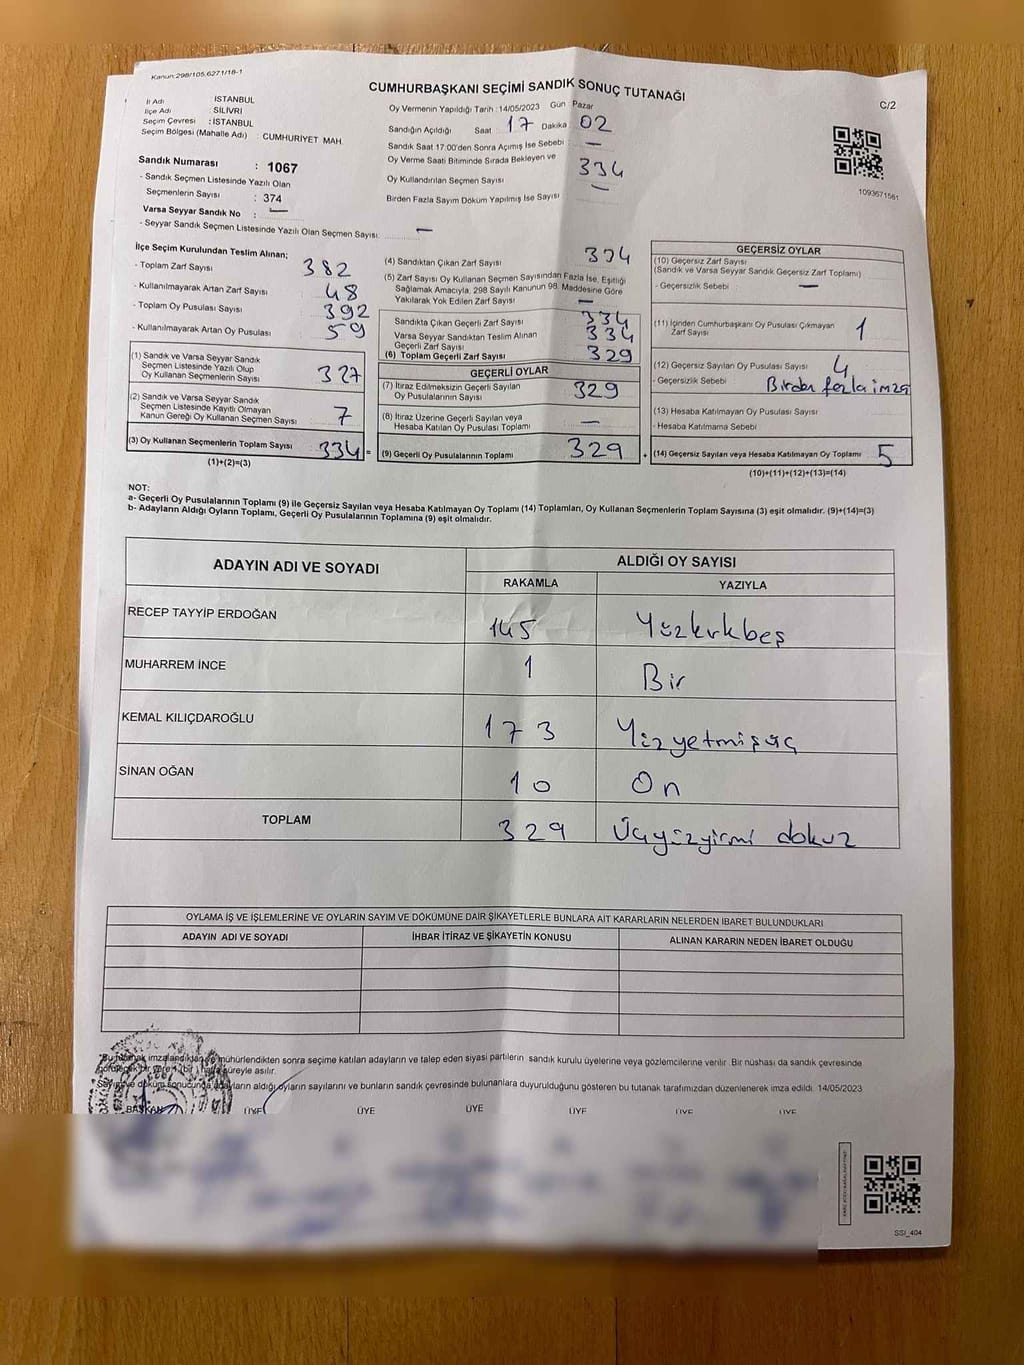 Kanun:298/105,6271/18-1
CUMHURBAŞKANI SEÇİMİ SANDIK SONUÇ TUTANAĞI
C/2
İl Adı : İSTANBUL
İlçe Adı : SİLİVRİ
Seçim Çevresi : İSTANBUL
Seçim Bölgesi (Mahalle Adı) : CUMHURİYET MAH.
Sandık Numarası : 1067
- Sandık Seçmen Listesinde Yazılı Olan
Seçmenlerin Sayısı : 374
Varsa Seyyar Sandık No : —
- Seyyar Sandık Seçmen Listesinde Yazılı Olan Seçmen Sayısı: —
Oy Vermenin Yapıldığı Tarih : 14/05/2023 Gün Pazar
Sandığın Açıldığı Saat 17 Dakika 02
Sandık Saat 17:00'den Sonra Açımış İse Sebebi : —
Oy Verme Saati Bitiminde Sırada Bekleyen ve
Oy Kullandırılan Seçmen Sayısı 334
Birden Fazla Sayım Döküm Yapılmış İse Sayısı —
1093671561
İlçe Seçim Kurulundan Teslim Alınan;
- Toplam Zarf Sayısı 382
- Kullanılmayarak Artan Zarf Sayısı 48
- Toplam Oy Pusulası Sayısı 392
- Kullanılmayarak Artan Oy Pusulası 59
(1) Sandık ve Varsa Seyyar Sandık
Seçmen Listesinde Yazılı Olup
Oy Kullanan Seçmenlerin Sayısı 327
(2) Sandık ve Varsa Seyyar Sandık
Seçmen Listesinde Kayıtlı Olmayan
Kanun Gereği Oy Kullanan Seçmen Sayısı 7
(3) Oy Kullanan Seçmenlerin Toplam Sayısı 334 =
(1)+(2)=(3)
(4) Sandıktan Çıkan Zarf Sayısı 334
(5) Zarf Sayısı Oy Kullanan Seçmen Sayısından Fazla İse, Eşitliği
Sağlamak Amacıyla, 298 Sayılı Kanunun 98. Maddesine Göre
Yakılarak Yok Edilen Zarf Sayısı —
Sandıkta Çıkan Geçerli Zarf Sayısı 334
Varsa Seyyar Sandıktan Teslim Alınan
Geçerli Zarf Sayısı 334
(6) Toplam Geçerli Zarf Sayısı 329
GEÇERLİ OYLAR
(7) İtiraz Edilmeksizin Geçerli Sayılan
Oy Pusulalarının Sayısı 329
(8) İtiraz Üzerine Geçerli Sayılan veya
Hesaba Katılan Oy Pusulası Toplamı —
(9) Geçerli Oy Pusulalarının Toplamı 329 +
GEÇERSİZ OYLAR
(10) Geçersiz Zarf Sayısı
(Sandık ve Varsa Seyyar Sandık Geçersiz Zarf Toplamı)
- Geçersizlik Sebebi —
(11) İçinden Cumhurbaşkanı Oy Pusulası Çıkmayan
Zarf Sayısı 1
(12) Geçersiz Sayılan Oy Pusulası Sayısı 4
- Geçersizlik Sebebi Birden fazla imza
(13) Hesaba Katılmayan Oy Pusulası Sayısı
- Hesaba Katılmama Sebebi
(14) Geçersiz Sayılan veya Hesaba Katılmayan Oy Toplamı 5
(10)+(11)+(12)+(13)=(14)
NOT:
a- Geçerli Oy Pusulalarının Toplamı (9) ile Geçersiz Sayılan veya Hesaba Katılmayan Oy Toplamı (14) Toplamları, Oy Kullanan Seçmenlerin Toplam Sayısına (3) eşit olmalıdır. (9)+(14)=(3)
b- Adayların Aldığı Oyların Toplamı, Geçerli Oy Pusulalarının Toplamına (9) eşit olmalıdır.
ADAYIN ADI VE SOYADI
ALDIĞI OY SAYISI
RAKAMLA YAZIYLA
RECEP TAYYİP ERDOĞAN 145 Yüzkırkbeş
MUHARREM İNCE 1 Bir
KEMAL KILIÇDAROĞLU 173 Yüzyetmişüç
SİNAN OĞAN 10 On
TOPLAM 329 Üçyüzyirmi dokuz
OYLAMA İŞ VE İŞLEMLERİNE VE OYLARIN SAYIM VE DÖKÜMÜNE DAİR ŞİKAYETLERLE BUNLARA AİT KARARLARIN NELERDEN İBARET BULUNDUKLARI
ADAYIN ADI VE SOYADI İHBAR İTİRAZ VE ŞİKAYETİN KONUSU ALINAN KARARIN NEDEN İBARET OLDUĞU
*Bu tutanak imzalandıktan ve mühürlendikten sonra seçime katılan adayların ve talep eden siyasi partilerin sandık kurulu üyelerine veya gözlemcilerine verilir. Bir nüshası da sandık çevresinde
görülecek bir yere 1 (bir) hafta süreyle asılır.
Sayım ve döküm sonucunda adayların aldığı oyların sayılarını ve bunların sandık çevresinde bulunanlara duyurulduğunu gösteren bu tutanak tarafımızdan düzenlenerek imza edildi. 14/05/2023
BAŞKAN ÜYE ÜYE ÜYE ÜYE ÜYE ÜYE
SSI_404